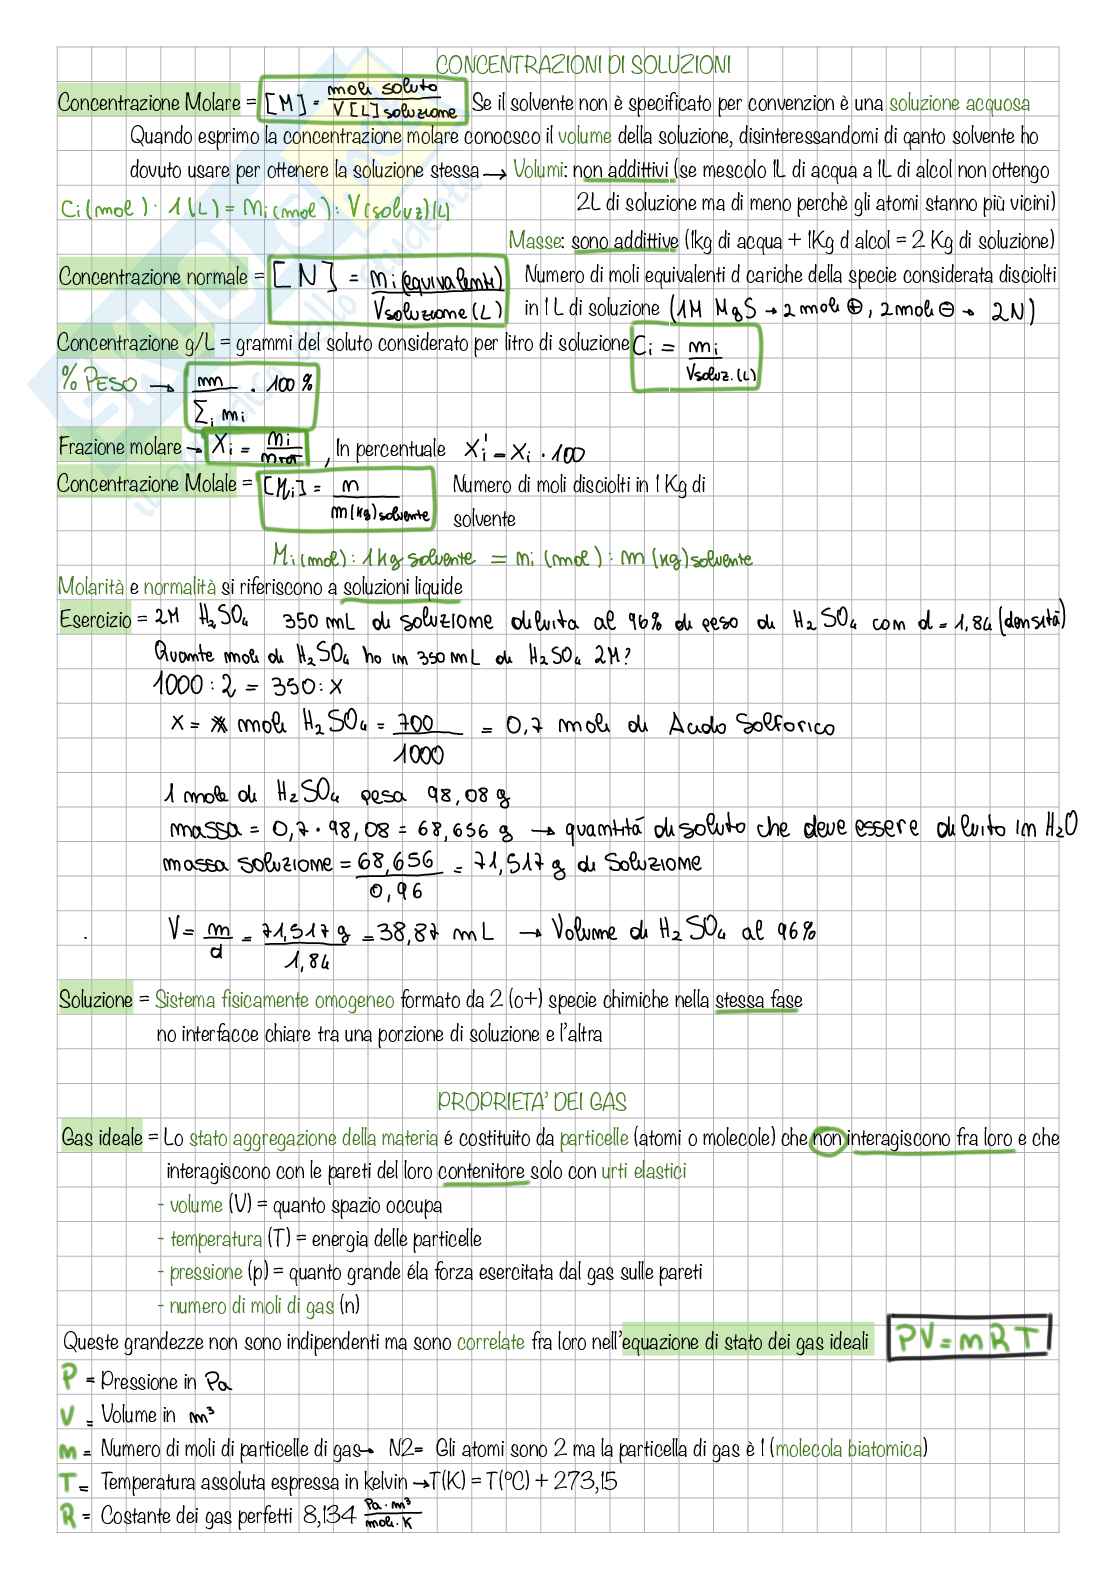 CONCENTRAZIONI DI SOLUZIONI
Concentrazione Molare = [M] = moli soluto / V [L] soluzione Se il solvente non è specificato per convenzion è una soluzione acquosa
Quando esprimo la concentrazione molare conocsco il volume della soluzione, disinteressandomi di qanto solvente ho
dovuto usare per ottenere la soluzione stessa → Volumi: non addittivi (se mescolo 1L di acqua a 1L di alcol non ottengo
Ci (mol) : 1 (L) = Mi (mol) : V (soluz) (L) 2L di soluzione ma di meno perchè gli atomi stanno più vicini)
Masse: sono addittive (1kg di acqua + 1Kg d alcol = 2 Kg di soluzione)
Concentrazione normale = [N] = mi (equivalenti) / V soluzione (L) Numero di moli equivalenti d cariche della specie considerata disciolti
in 1 L di soluzione (1M MgS → 2 moli ⊕, 2 moli ⊖ → 2N)
Concentrazione g/L = grammi del soluto considerato per litro di soluzione Ci = mi / Vsoluz. (L)
% PESO → mn / Σi mi · 100 %
Frazione molare → Xi = ni / ntot , In percentuale Xi' = Xi · 100
Concentrazione Molale = [Mi] = n / m (kg) solvente Numero di moli disciolti in 1 Kg di
solvente
Mi (mol) : 1 kg solvente = ni (mol) : m (kg) solvente
Molarità e normalità si riferiscono a soluzioni liquide
Esercizio = 2M H₂SO₄ 350 mL di soluzione diluita al 96% di peso di H₂SO₄ con d = 1,84 (densità)
Quante moli di H₂SO₄ ho in 350 mL di H₂SO₄ 2M?
1000 : 2 = 350 : x
x = moli H₂SO₄ = 700 / 1000 = 0,7 moli di Acido Solforico
1 mole di H₂SO₄ pesa 98,08 g
massa = 0,7 · 98,08 = 68,656 g → quantità di soluto che deve essere diluito in H₂O
massa soluzione = 68,656 / 0,96 = 71,517 g di soluzione
V = m / d = 71,517 g / 1,84 = 38,87 mL → Volume di H₂SO₄ al 96%
Soluzione = Sistema fisicamente omogeneo formato da 2 (o+) specie chimiche nella stessa fase
no interfacce chiare tra una porzione di soluzione e l'altra
PROPRIETA' DEI GAS
Gas ideale = Lo stato aggregazione della materia é costituito da particelle (atomi o molecole) che non interagiscono fra loro e che
interagiscono con le pareti del loro contenitore solo con urti elastici
- volume (V) = quanto spazio occupa
- temperatura (T) = energia delle particelle
- pressione (p) = quanto grande éla forza esercitata dal gas sulle pareti
- numero di moli di gas (n)
Queste grandezze non sono indipendenti ma sono correlate fra loro nell'equazione di stato dei gas ideali PV = nRT
P = Pressione in Pa
V = Volume in m³
n = Numero di moli di particelle di gas → N2= Gli atomi sono 2 ma la particella di gas è 1 (molecola biatomica)
T = Temperatura assoluta espressa in kelvin → T(K) = T(°C) + 273,15
R = Costante dei gas perfetti 8,134 Pa · m³ / moli · K